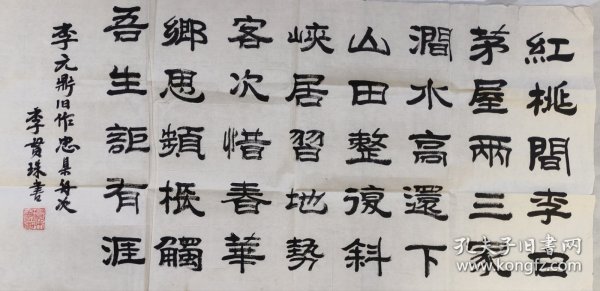 紅桃間李白
茅屋兩三家
澗水高還下
山田整復斜
峽居習地勢
客次惜春華
鄉思頻棖觸
吾生詎有涯
李元鼎旧作忠县舟次
珠書
孔夫子旧书网
www.kongfz.com